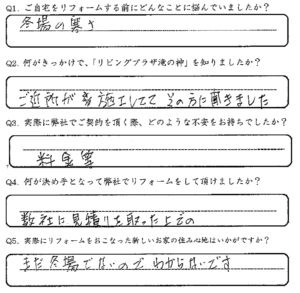 Q1. ご自宅をリフォームする前にどんなことに悩んでいましたか?
冬場の寒さ
Q2. 何がきっかけで、「リビングプラザ滝の神」を知りましたか?
ご近所が実施してて その方に聞きました
Q3. 実際に弊社でご契約を頂く際、どのような不安をお持ちでしたか?
料金等
Q4. 何が決め手となって弊社でリフォームをして頂けましたか?
数社に見積りを取った上での
Q5. 実際にリフォームをおこなった新しいお家の住み心地はいかがですか?
まだ冬場でないので わからないです